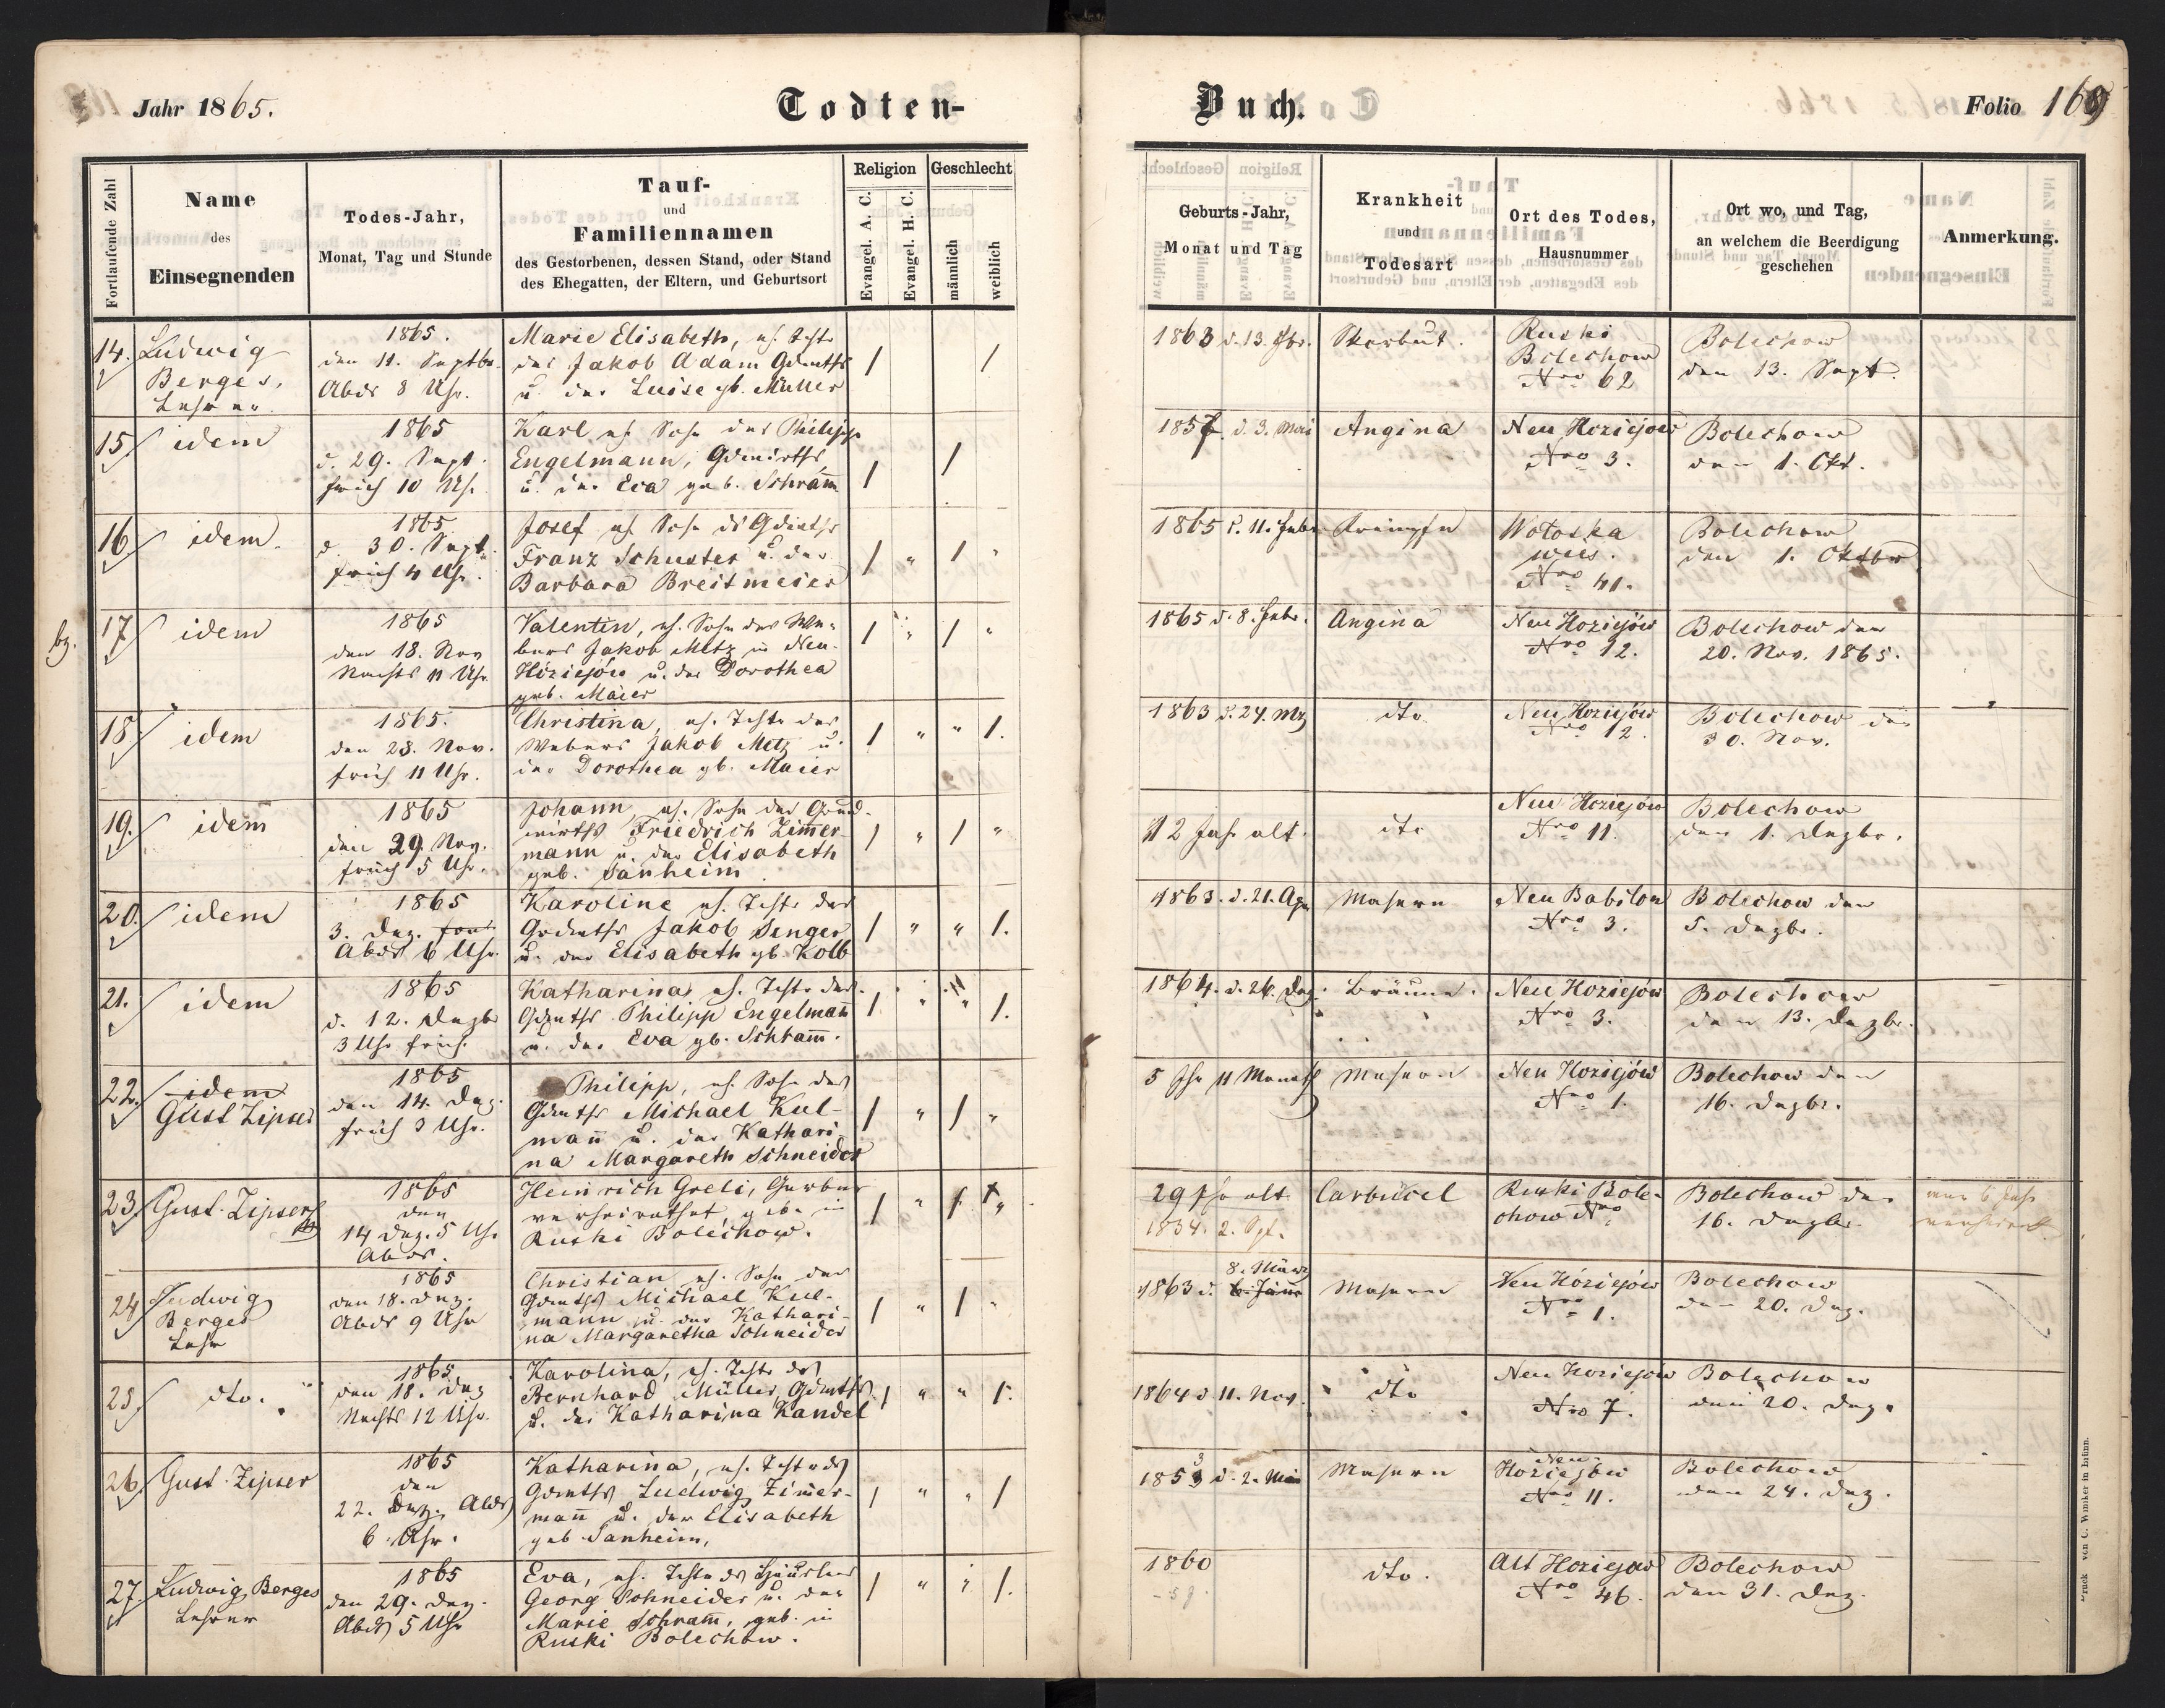 Jahr 1865.
Todten-
Buch.
Folio 169
Fortlaufende Zahl
Name
des
Einsegnenden
Todes-Jahr,
Monat, Tag und Stunde
Tauf-
und
Familiennamen
des Gestorbenen, dessen Stand, oder Stand
des Ehegatten, der Eltern, und Geburtsort
Religion
Evangel. A. C.
Evangel. H. C.
Geschlecht
männlich
weiblich
Geburts-Jahr,
Monat und Tag
Krankheit
und
Todesart
Ort des Todes,
Hausnummer
Ort wo, und Tag,
an welchem die Beerdigung
geschehen
Anmerkung.
14.
Ludwig
Berges,
Lehrer.
1865.
den 11. Septbr.
Abds 8 Uhr.
Marie Elisabeth, eh. Toht
des Jakob Adam Gdwths
u. der Luise gb. Müller
/ /
1863 d. 13. Fbr.
Skorbut.
Ruski
Bolechow
Nro 62
Bolechow
den 13. Sept.
15
idem
1865
d. 29. Sept.
früh 10 Uh.
Karl eh. Sohn des Philipp
Engelmann, Gdwirths
u. der Eva geb. Schram̄
/ /
1857. d. 3. März
Angina
Neu Hoziejow
Nro 3.
Bolechow
den 1. Okt.
16
idem.
1865
d. 30. Sept.
früh 4 Uh.
Josef eh. Sohn ds Gdwths
Franz Schuster u. der
Barbara Breitmeier
/ " / "
1865 d. 11. Febr
Krämpfe
Wołoska
wies.
Nro 41.
Bolechow
den 1. Oktbr
bz.
17
idem
1865
den 18. Nov
Nachts 11 Uhr.
Valentin, eh. Sohn des We-
bers Jakob Metz in Neu-
Hoziejów u. der Dorothea
geb. Maier
/ " / "
1865 d. 8. Febr.
Angina
Neu Hoziejów
Nro 12.
Bolechow den
20. Nov. 1865.
18
idem
1865.
den 28. Nov.
früh 11 Uhr.
Christina, eh. Toht des
Webers Jakob Metz u.
der Dorothea gb. Maier
/ " " /.
1863 d. 24. Mz
dto
Neu Hoziejów
Nro 12.
Bolechow den
30. Nov.
19.
idem
1865
den 29. Nov.
früh 5 Uhr.
Johann eh. Sohn des Grund-
wirths Friedrich Zim̄er-
mann u. der Elisabeth
geb. Sanheim
/ " / "
12 Jah. alt.
dto
Neu Hoziejów
Nro 11.
Bolechow
den 1. Dezbr.
20.
idem
1865
3. Dez. früh
Abds 6 Uhr.
Karoline eh. Toht des
Grdwths Jakob Senger
u. der Elisabeth gb. Kolb
/ " " /.
1863. d. 21. Apr
Masern
Neu Babilon
Nro 3.
Bolechow den
5. Dezbr.
21.
idem
1865
d. 12. Dezbr
3 Uhr früh.
Katharina eh. Toht des
Gdwths Philipp Engelman̄
u. der Eva gb. Schram̄.
/. " " /.
1864. d. 26. Dez.
Bräune.
Neu Hoziejow
Nro 3.
Bolechow
den 13. Dezbr.
22.
idem
Gust Zipser
1865
den 14. Dez.
früh 3 Uhr.
Philipp, eh. Sohn des
Gdwths Michael Kul-
man̄ u. der Kathari-
na Margareth Schneider
/ " / "
5 Jhr 11 Monath
Masern
Neu Hoziejów
Nro 1.
Bolechow den
16. Dezbr.
23.
Gust. Zipser
1865
den
14 Dez. 5 Uhr
Abds.
Heinrich Greli, Gerber
verheirathet, geb. in
Ruski Bolechow.
/ " /
29 Jhr alt
1834. 2. Spt.
Carbucel
Ruski Bole-
chow Nro
Bolechow den
16. Dezbr
war 6 Jahr
24
Ludwig
Berges
Lehr
1865
den 18. Dez.
Abds 9 Uhr
Christian eh. Sohn des
Gdwths Michael Kul-
mann u. der Kathari-
na Margaretha Schneider
/ " / "
8. März
1863 d. 6. Jänr
Masern
Neu Hoziejów
Nro 1.
Bolechow
den 20. Dez.
25.
dto.
1865.
den 18. Dez
Nachts 12 Uhr.
Karolina, eh. Toht des
Bernhard Müller, Gdwths.
u. der Katharina Kandel
/ " " /.
1864 d 11. Nov.
dto
Neu Hoziejow
Nro 7.
Bolechow
den 20. Dez.
26
Gust. Zipser
1865
den
22. Dez. Abds
6 Uhr.
Katharina, eh. Toht ds
Gdwths Ludwig Zim̄er-
man̄ u. der Elisabeth
geb Sanheim,
/ " " /
1853 d. 2. Mai
Masern
Neu-
Hoziejów
Nro 11.
Bolechow
den 24. Dez.
27.
Ludwig Berges
Lehrer
1865
den 29. Dez.
Abds 5 Uhr
Eva, eh. Toht ds Häuslers
Georg Schneider u. der
Marie Schram̄, geb. in
Ruski Bolechow.
/ " " /.
1860
- 5 J.
dto.
Alt Hoziejow
Nro 46.
Bolechow
den 31. Dez.
Druck von C. Winiker in Brünn.